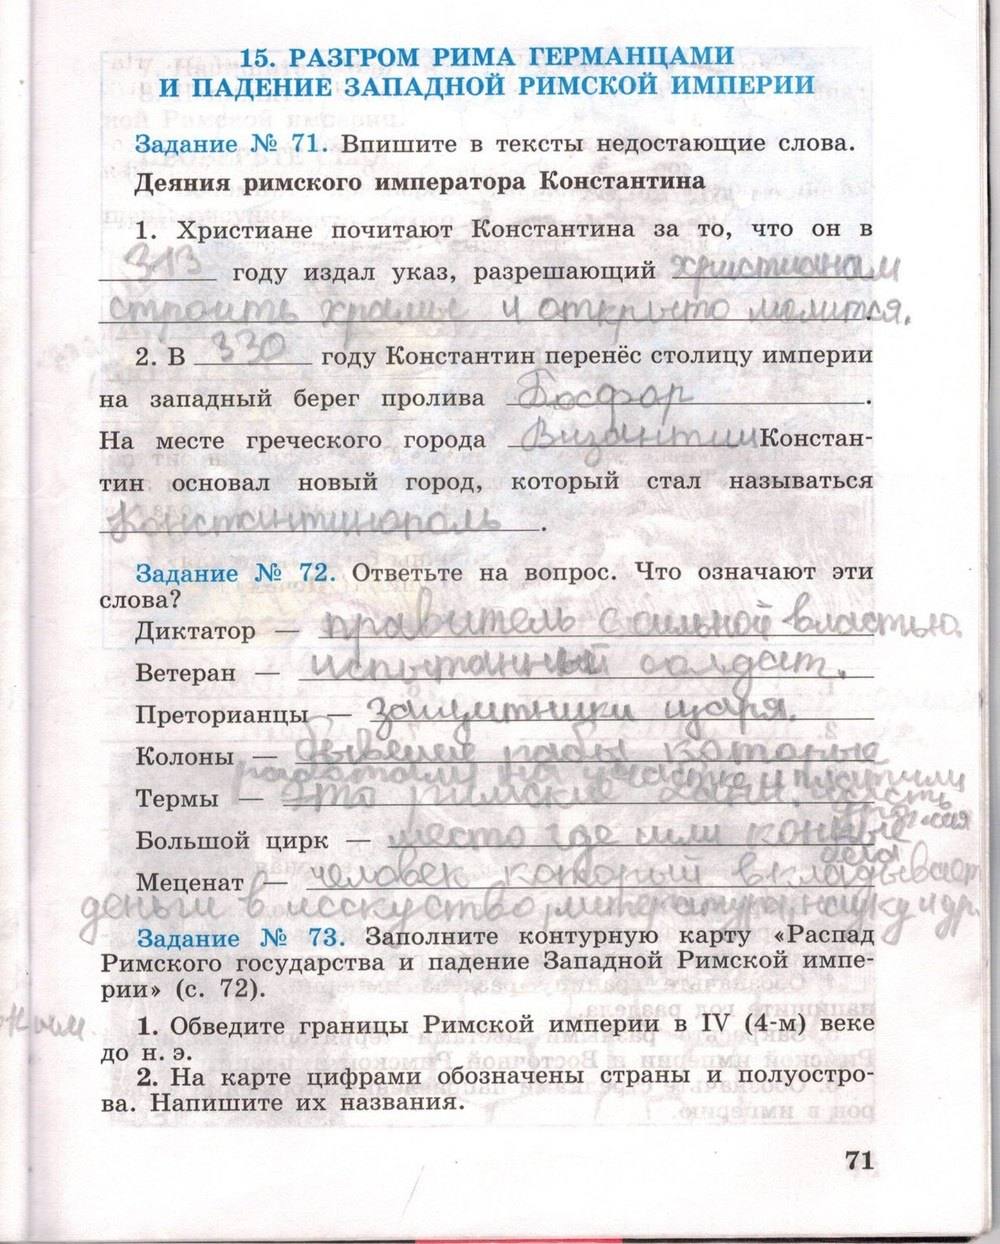 15. РАЗГРОМ РИМА ГЕРМАНЦАМИ
И ПАДЕНИЕ ЗАПАДНОЙ РИМСКОЙ ИМПЕРИИ
Задание № 71. Впишите в тексты недостающие слова.
Деяния римского императора Константина
1. Христиане почитают Константина за то, что он в
313 году издал указ, разрешающий христианам
строить храмы и открыто молится.
2. В 330 году Константин перенёс столицу империи
на западный берег пролива Босфор.
На месте греческого города Византии Констан-
тин основал новый город, который стал называться
Константинополь.
Задание № 72. Ответьте на вопрос. Что означают эти
слова?
Диктатор — правитель с сильной властью.
Ветеран — испытанный солдат.
Преторианцы — защитники царя.
Колоны — бывшие рабы которые
работали на участке и платили
Термы — это римские бани. часть
Большой цирк — место где шли конные
бега
Меценат — человек который вкладывает
деньги в исскуство, литературу, науку и др.
Задание № 73. Заполните контурную карту «Распад
Римского государства и падение Западной Римской импе-
рии» (с. 72).
1. Обведите границы Римской империи в IV (4-м) веке
до н. э.
2. На карте цифрами обозначены страны и полуостро-
ва. Напишите их названия.
71